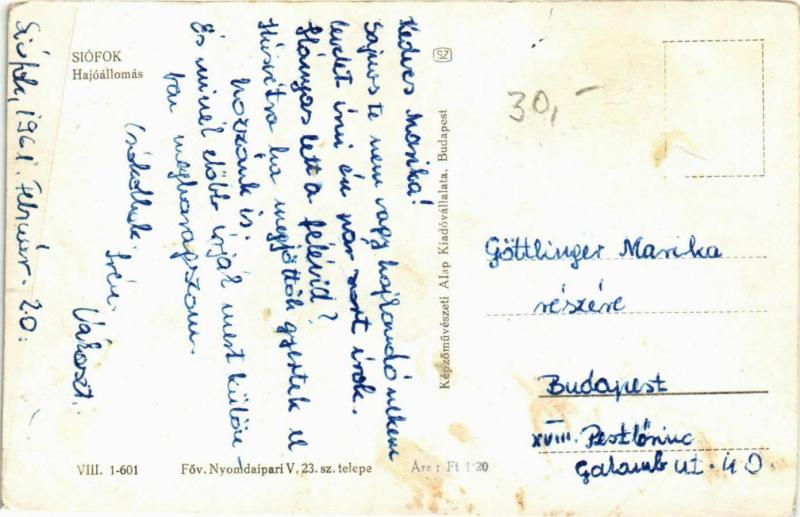 SIÓFOK
Hajóállomás
Siófok, 1961. Február. 20.
Kedves Marika!
Sajnos te nem vagy hajlandó nekem
levelet írni én már mert írok.
Hányas lett a félévid?
Húsvétra ha megjöttök gyertek el
hozzánk is.
És minél előbb írjál mert külön-
ben megharagszom.
Csókollak. Irén.
Választ.
Képzőművészeti Alap Kiadóvállalata, Budapest
SZ
30,-
Göttlinger Marika
részére
Budapest
XVIII. Pestlőrinc
Galamb ut. 40.
VIII. 1-601 Főv. Nyomdaipari V, 23. sz. telepe Ára: Ft 1·20